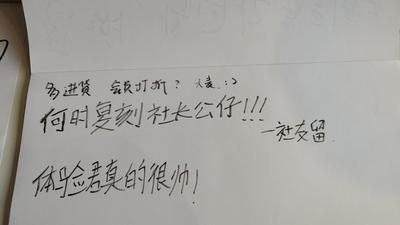 多进货 打折? :)
何时复刻社长公仔!!!
一社友留
体验君真的很帅!